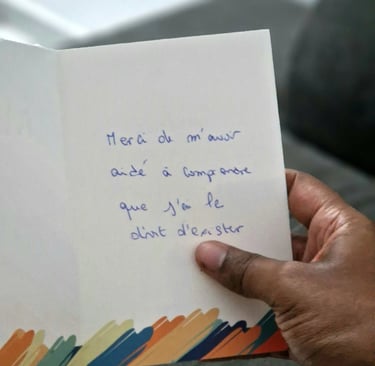 Merci de m'avoir
aidé à comprendre
que j'ai le
droit d'exister